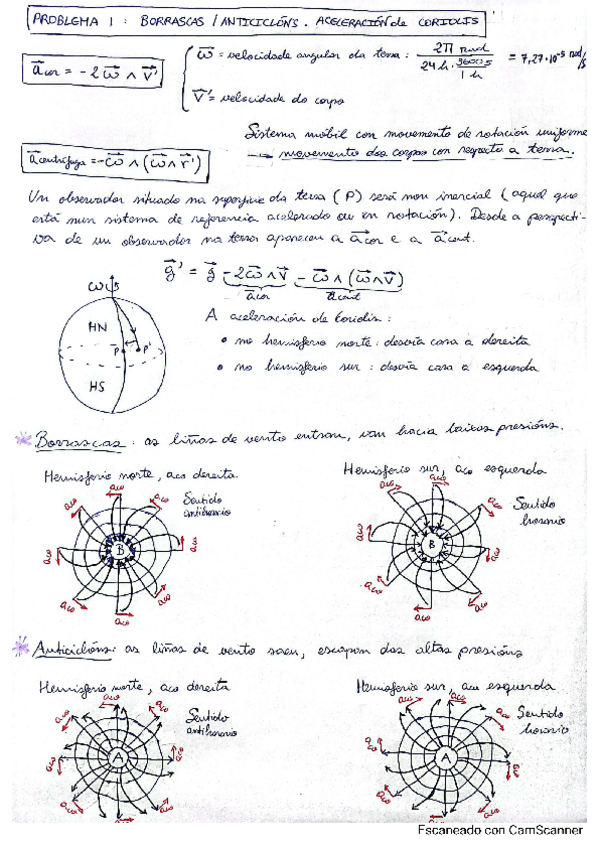 PROBLEMA 1: BORRASCAS / ANTICICLÓNS. ACELERACIÓN de CORIOLIS
a⃗cor = -2 ω⃗ ∧ v⃗'
ω⃗ = velocidade angular da terra: 2π rad / 24 h · 3600 s / 1 h = 7,27·10⁻⁵ rad/s
v⃗' = velocidade do corpo
Sistema móbil con movemento de rotación uniforme
→ movemento dos corpos con respecto a terra.
a⃗centrífuga = -ω⃗ ∧ (ω⃗ ∧ r⃗')
Un observador situado na superficie da terra (P) será non inercial (aquel que
está nun sistema de referencia acelerado ou en rotación). Desde a perspecti-
va de un observador na terra aparecen a a⃗cor e a a⃗cent.
g⃗' = g⃗ - 2ω⃗∧v⃗ - ω⃗∧(ω⃗∧v⃗)
a⃗cor a⃗cent
ω
HN
P P'
HS
A aceleración de Coriolis:
• no hemisferio norte: desvía cara a dereita
• no hemisferio sur: desvía cara a esquerda
* Borrascas: as liñas de vento entran, van hacia baixas presións.
Hemisferio norte, aco dereita
Sentido
antihorario
B
aco
Hemisferio sur, aco esquerda
Sentido
horario
B
aco
* Anticiclóns: as liñas de vento saen, escapan das altas presións
Hemisferio norte, aco dereita
Sentido
antihorario
A
aco
Hemisferio sur, aco esquerda
Sentido
horario
A
aco
Escaneado con CamScanner